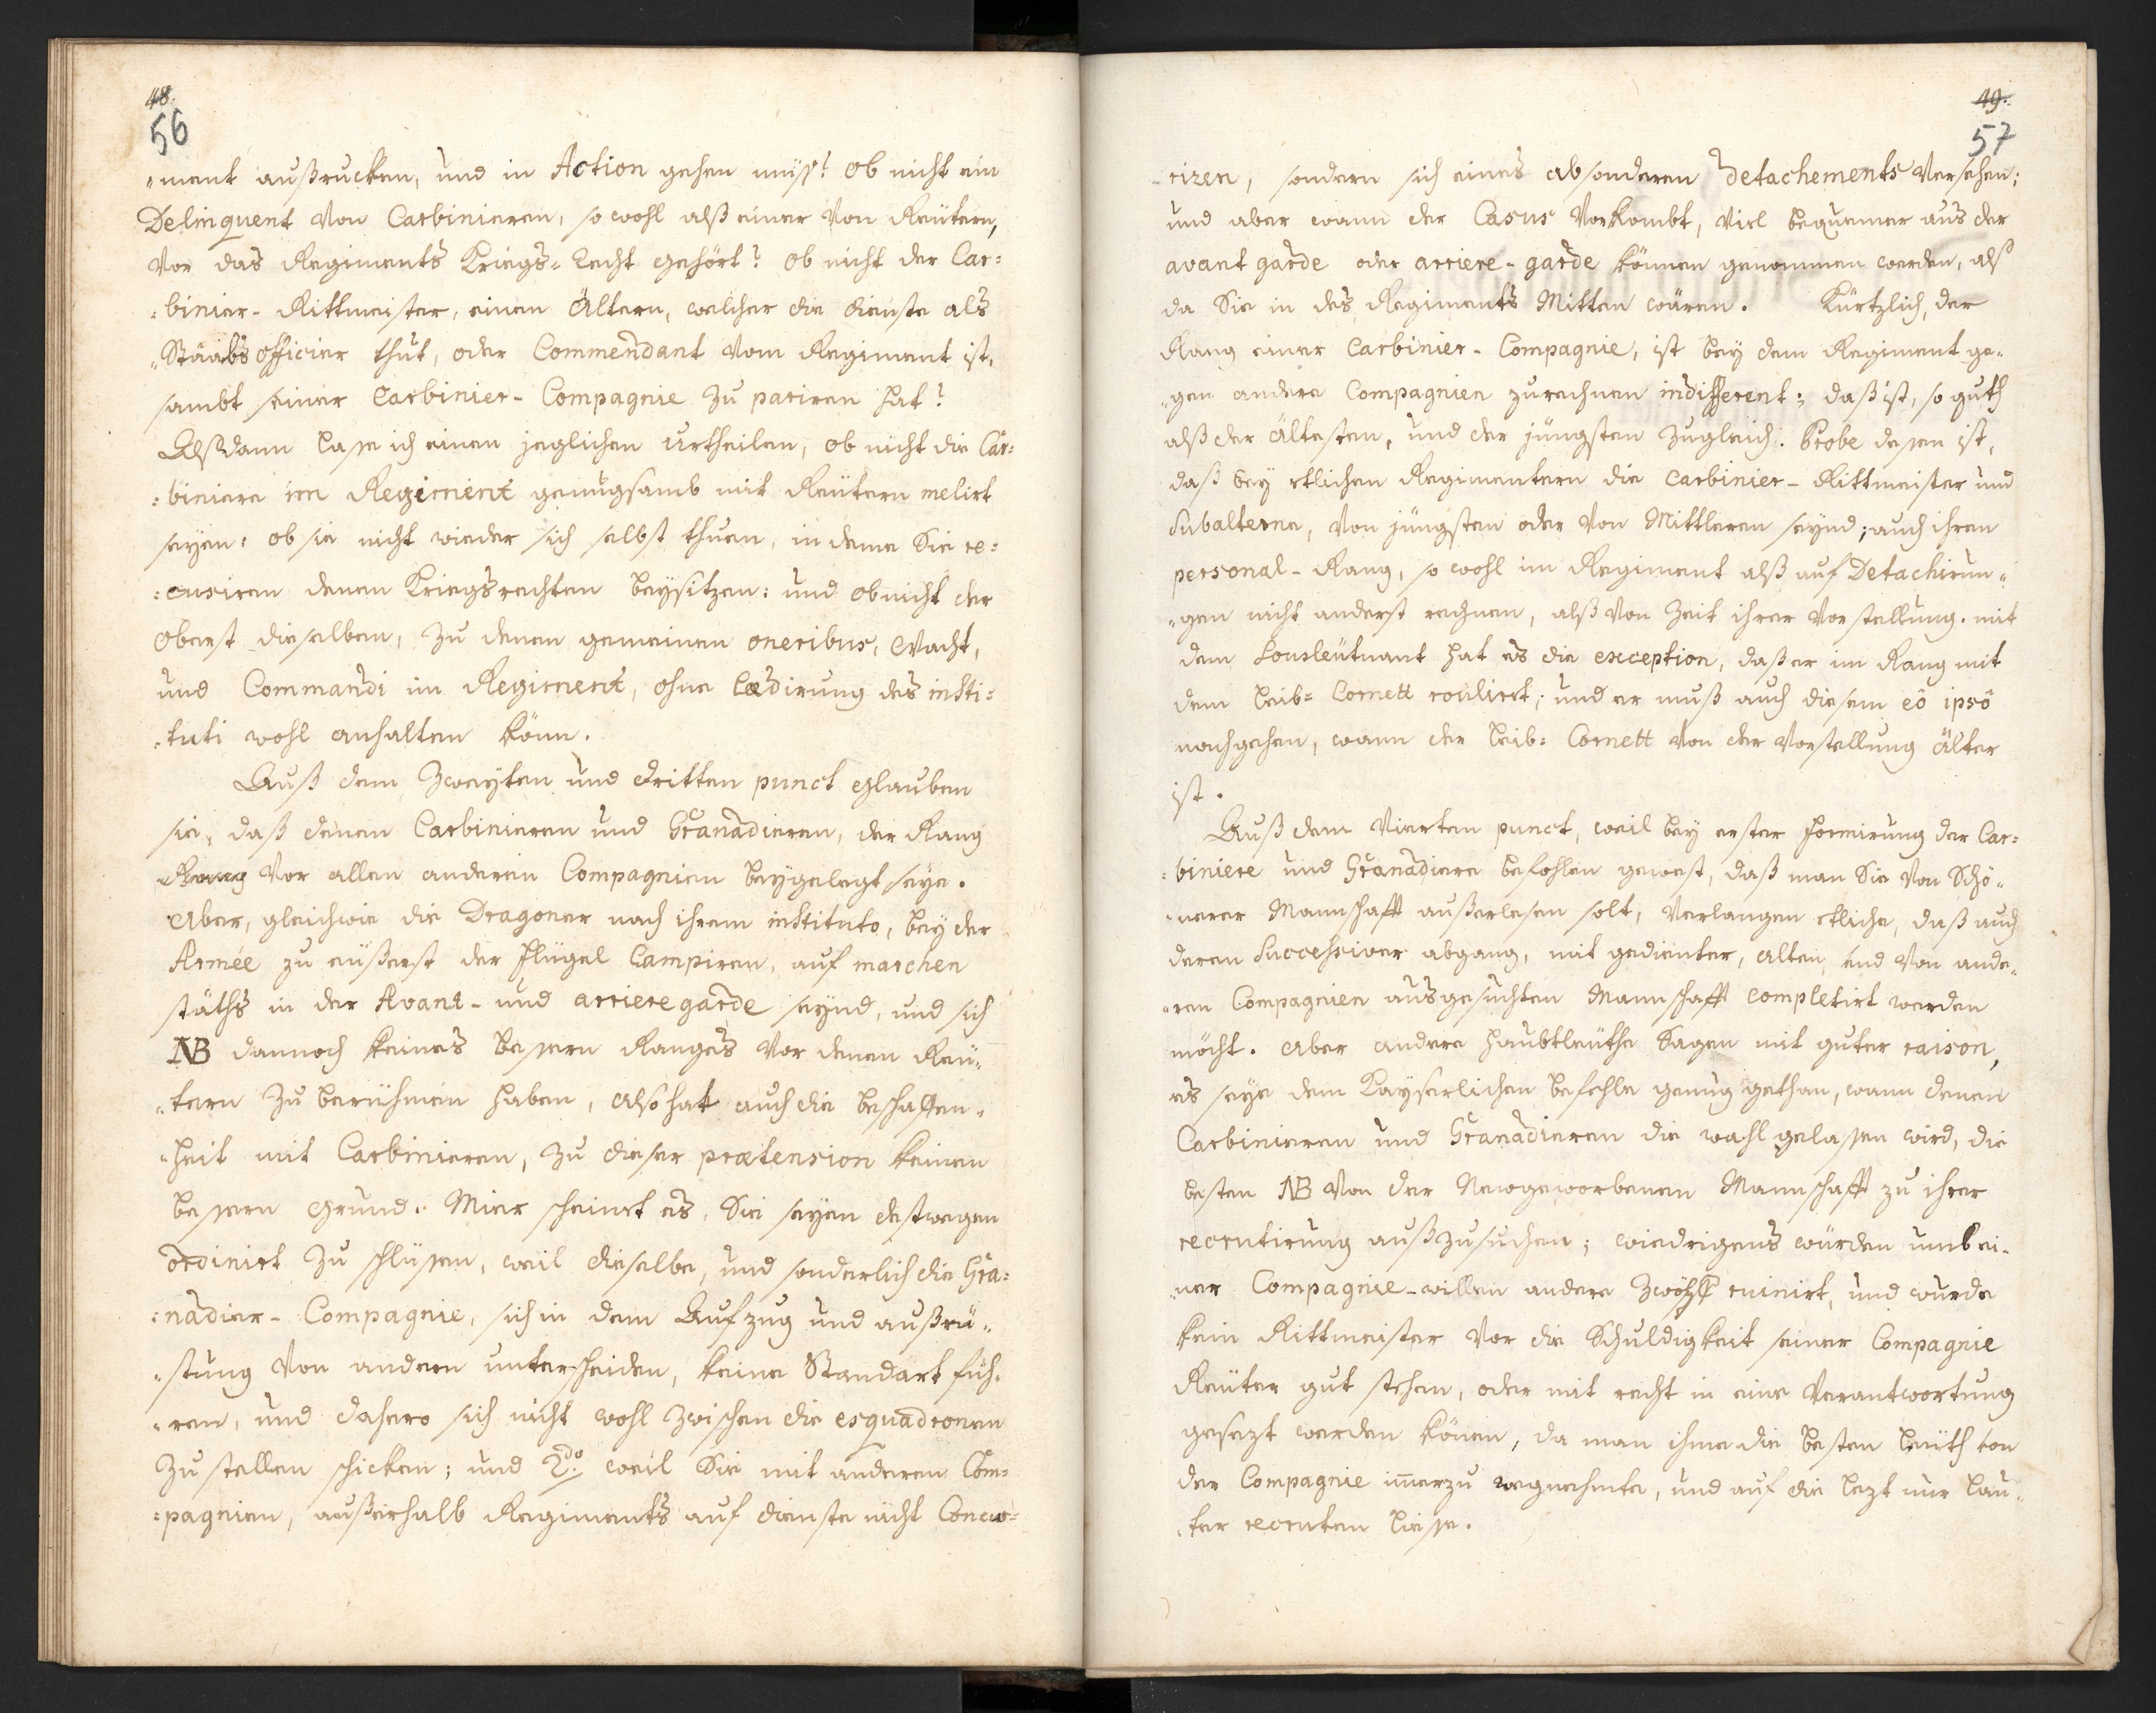 48.
56
„ment außrucken, und in Action gehen müss? ob nicht ein
Delinquent von Carbinieren, so wohl alß einer von Reütern,
vor das Regiments Kriegs=Recht gehört? ob nicht der Car=
=binier-Rittmeister, einem Ältern, welcher die dienste als
„Staabs officier thut, oder Commendant vom Regiment ist,
sambt seiner Carbinier-Compagnie zu pariren hat?
Alßdann lasse ich einen jeglichen Urtheilen, ob nicht die Car=
=biniere im Regiment genugsamb mit Reütern melirt
seyen: ob sie nicht wieder sich selbst thuen, in deme Sie re=
=cusiren denen Kriegsrechten beysitzen: und ob nicht der
Oberst dieselben, zu denen gemeinen oneribus, Wacht,
und Commandi im Regiment, ohne lædirung des insti=
=tuti wohl anhalten könn.
Auß dem Zweyten und dritten punct glauben
sie, daß denen Carbinieren und Granadieren, der Rang
Rang vor allen anderen Compagnien beygelegt seye.
Aber, gleichwie die Dragoner nach ihrem instituto, bey der
Armée zu eüßerst der Flügel Campiren, auf marchen
stäths in der Avant- und arrieregarde seynd, und sich
NB dannoch keines bessern Ranges vor denen Reü„
„tern zu berühmen haben, also hat auch die beschaffen„
„heit mit Carbinieren, zu dieser prætension keinen
bessern grund. Mier scheinet es, Sie seyen destwegen
ordinirt zu schlüssen, weil dieselbe, und sonderlich die Gra=
=nadier-Compagnie, sich in dem Aufzug und außrü„
„stung von andern unterscheiden, keine Standart füh„
„ren, und dahero sich nicht wohl zwischen die esquadronen
zu stellen schicken; und 2do weil Sie mit anderen Com=
=pagnien, außerhalb Regiments auf dienste nicht Concur=
49.
57
-riren, sondern sich eines absonderen Detachements versehen;
und aber wann der Casus vorkombt, viel bequemer aus der
avantgarde oder arriere-garde können genommen werden, alß
da Sie in des Regiments Mitten wären. Kürtzlich, der
Rang einer Carbinier-Compagnie, ist bey dem Regiment ge„
„gen andere Compagnien zurechnen indifferent; daß ist, so guth
alß der ältesten, und der jüngsten zugleich. Probe dessen ist,
daß bey etlichen Regimentern die Carbinier-Rittmeister und
Subalterne, von jüngsten oder von Mittleren seynd; auch ihren
personal-Rang, so wohl im Regiment alß auf Detachirun„
„gen nicht anderst rechnen, alß von Zeit ihrer vorstellung. mit
dem Sousleütnant hat es die exception, daß er im Rang mit
dem Leib=Cornett roulirt; und er muß auch diesem eô ipsô
nachgehen, wann der Leib=Cornett von der vorstellung älter
ist.
Auß dem Vierten punct, weil bey erster formirung der Car=
=biniere und Granadiere befohlen gewest, daß man Sie von Schö„
„nerer Mannschafft außerlesen solt, verlangen etliche, daß auch
deren Successiver abgang, mit gedienter, alten, und von ande„
„ren Compagnien ausgesuchten Mannschafft completirt werden
möcht. Aber andere haubtleüthe Sagen mit guter raison,
es seye dem Kayserlichen befehle genug gethan, wann denen
Carbinieren und Granadieren die wahl gelassen wird, die
besten NB von der Newgeworbenen Mannschafft zu ihrer
recrutirung außzusuchen; wiedrigens würden umb ei„
„ner Compagnie-willen andere zwölff ruinirt, und wurde
kein Rittmeister vor die Schuldigkeit seiner Compagnie
Reüter gut stehen, oder mit recht in eine Verantwortung
gesezt werden können, da man ihme die besten Leüth von
der Compagnie im̄erzu wegnehmete, und auf die lezt nur lau„
„ter recruten liesse.